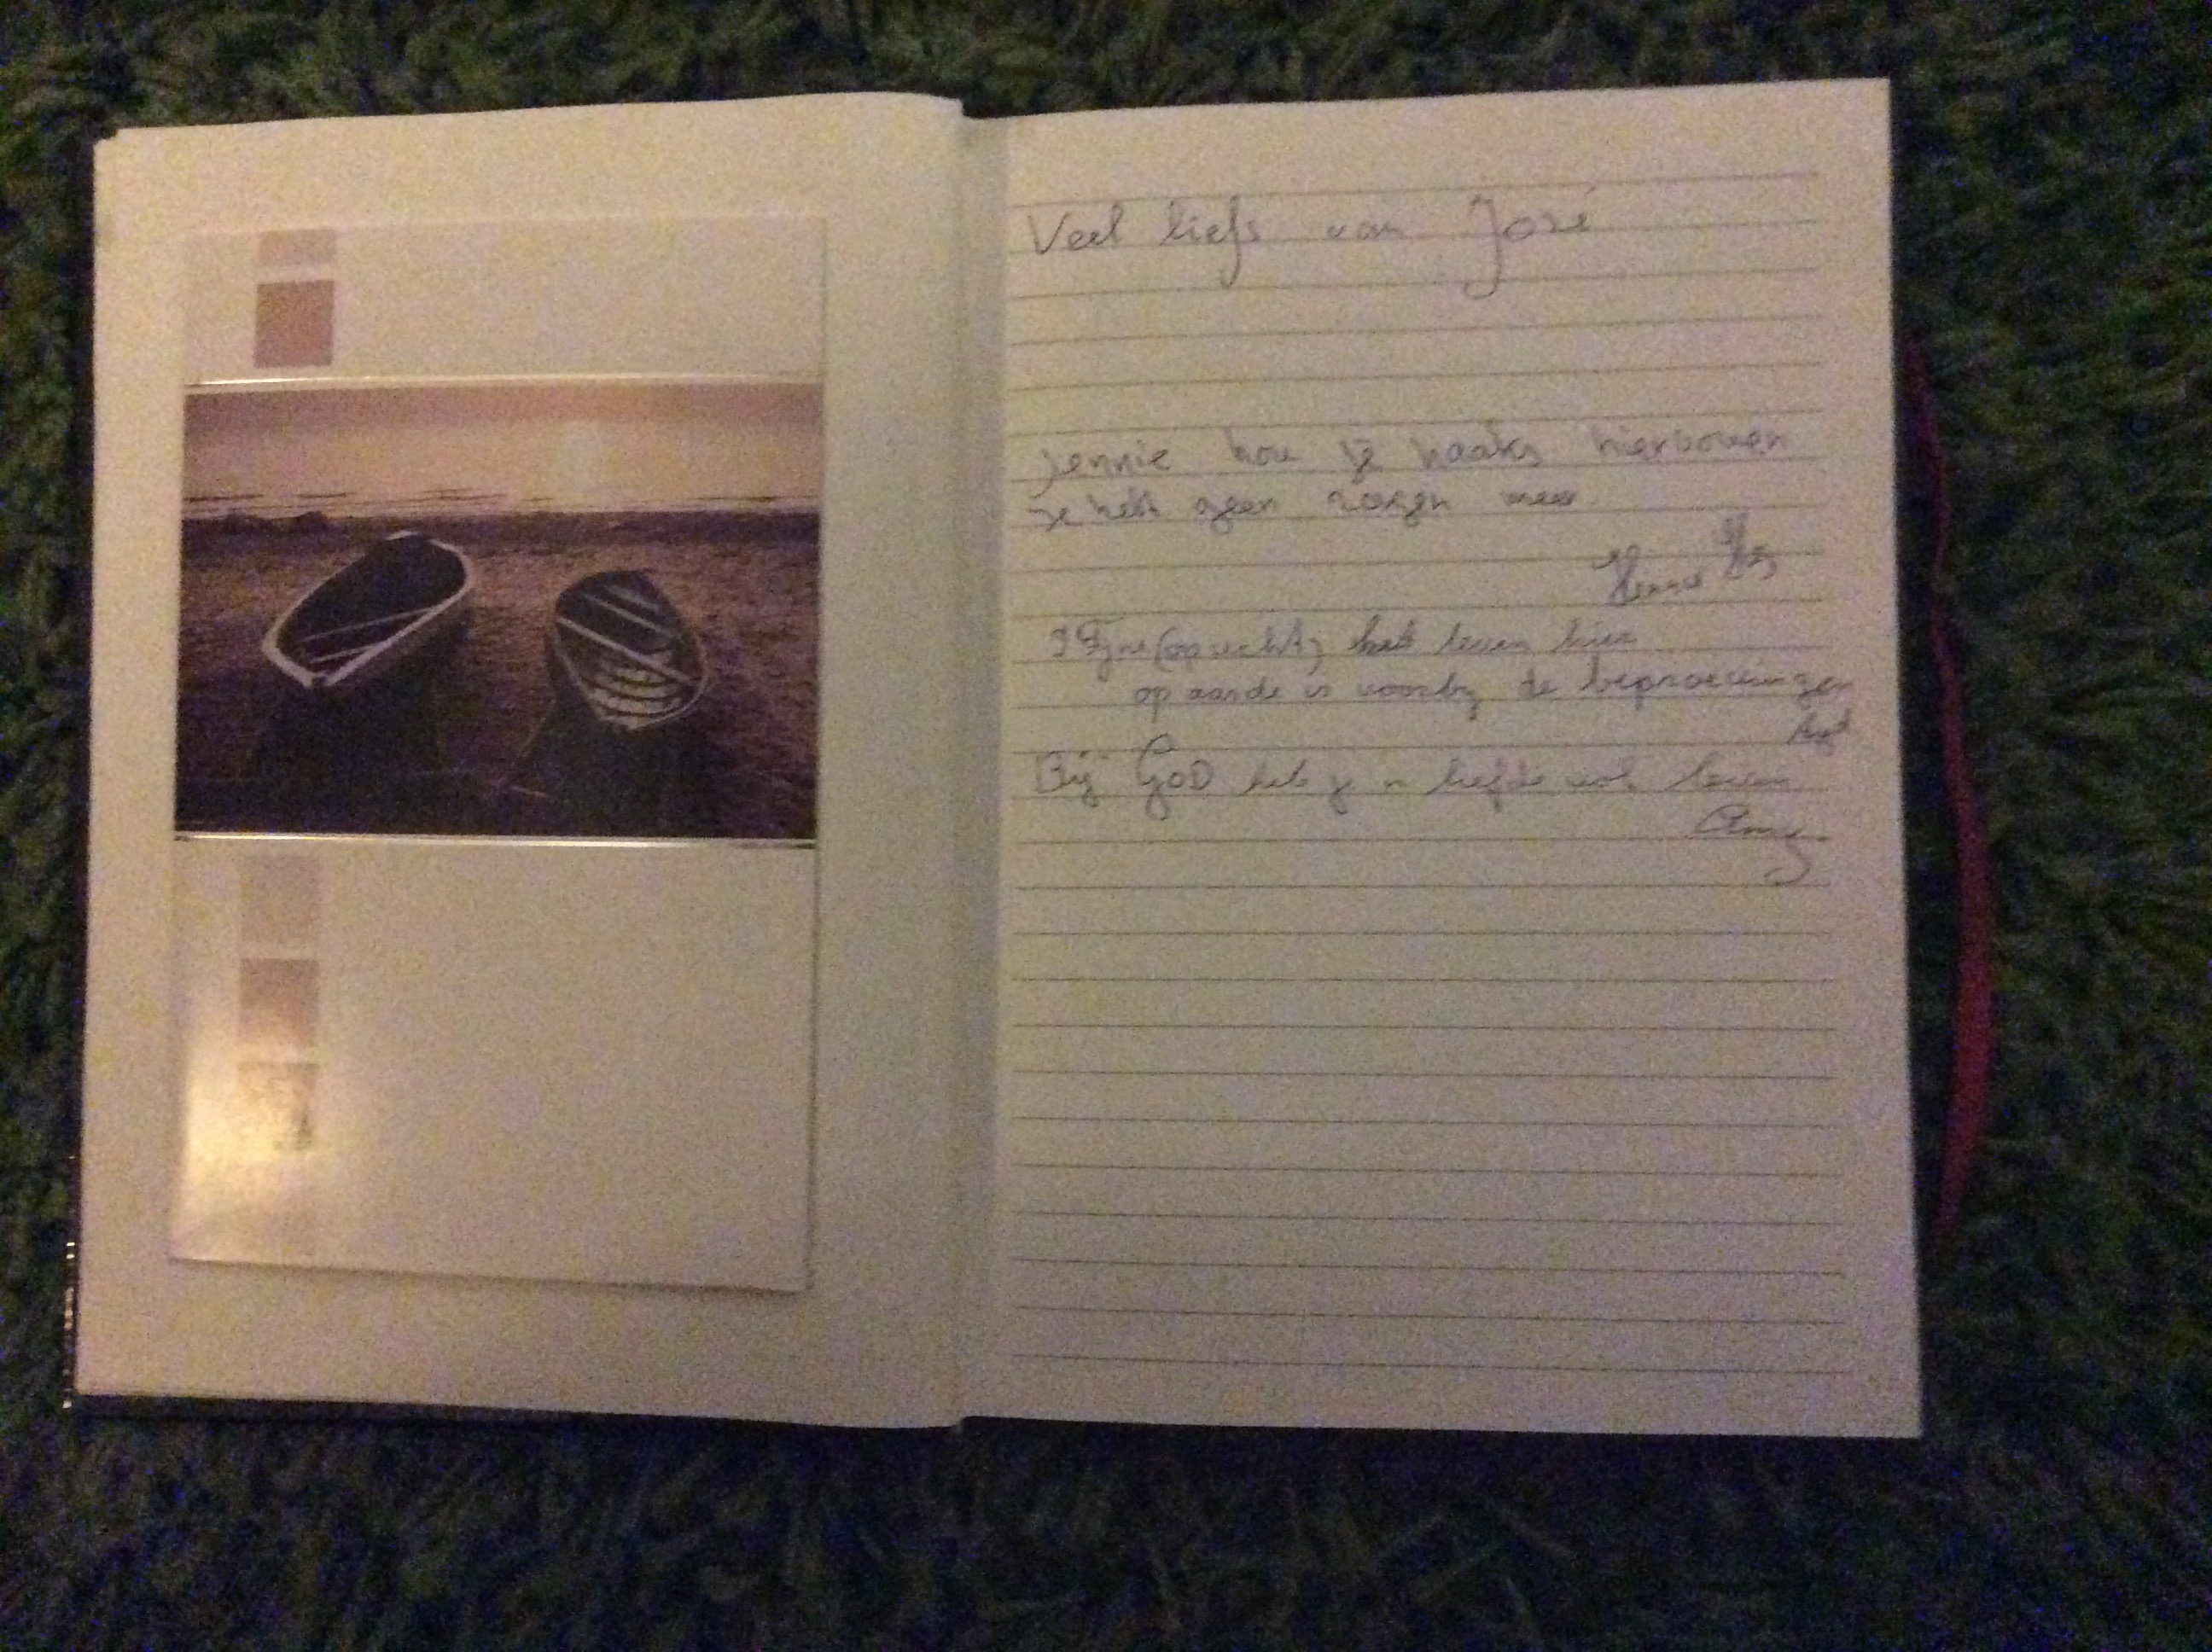 Veel liefs van José
Jennie hou je haaks hierboven
Je hebt geen zorgen meer.
(oprecht) het leven hier
op aarde is voorbij de beproevingen
Bij GOD heb je n liefde vol leven